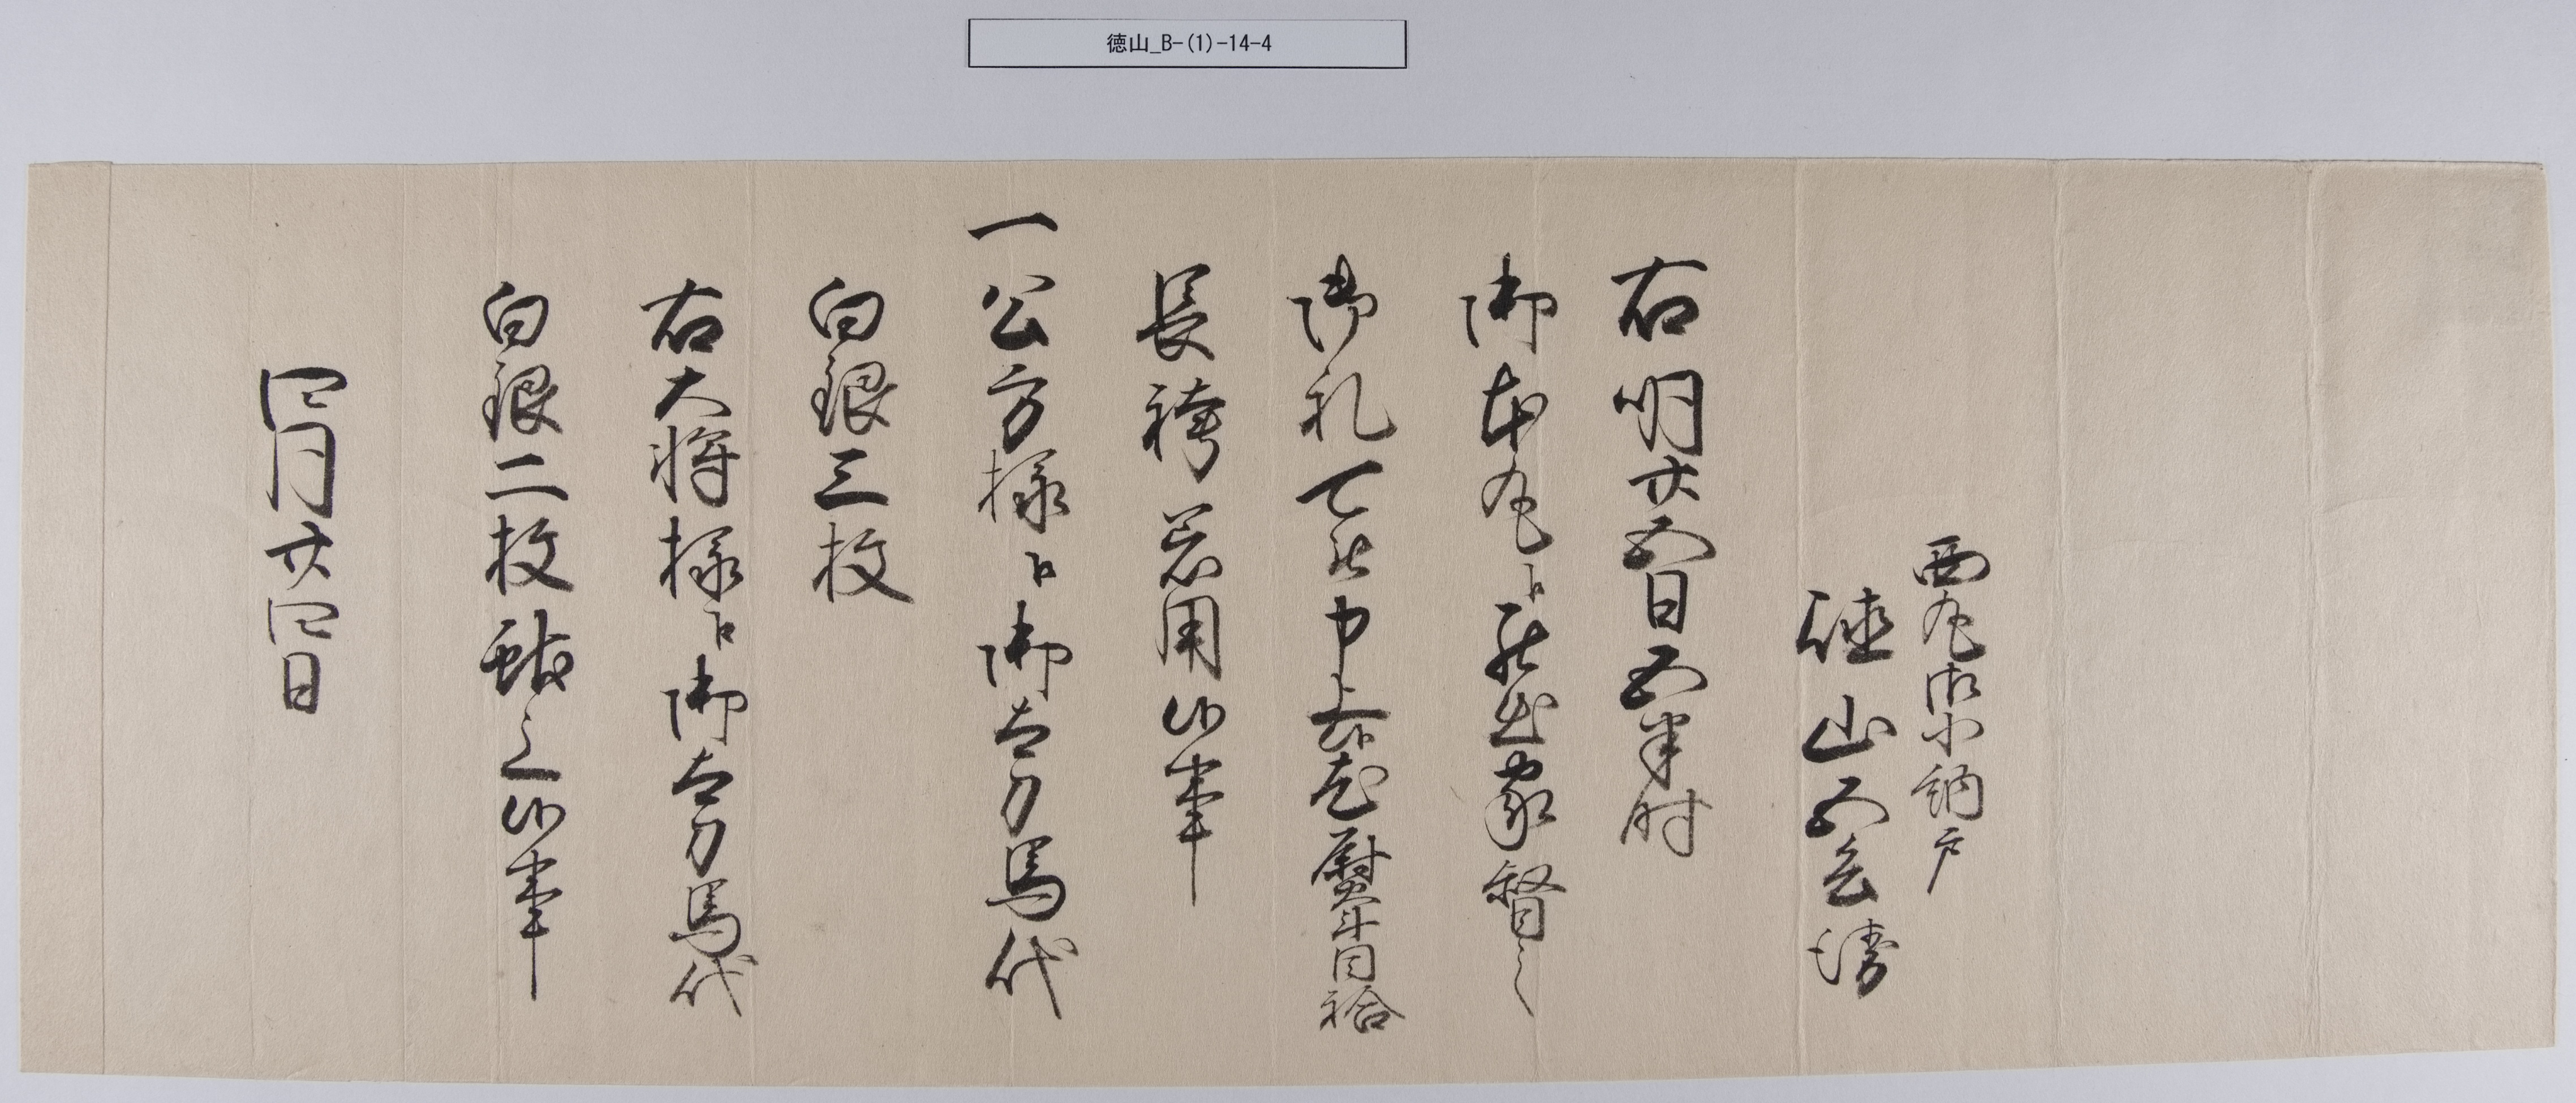 徳山_B-(1)-14-4
西丸御小納戸
徳山五兵衛
右明廿五日五半時
御本丸江罷出家督之
御礼可被申上候尤熨斗目袷
長袴着用候事
一公方様江御太刀馬代
白銀三枚
右大将様江御太刀馬代
白銀二枚献之候事
四月廿四日